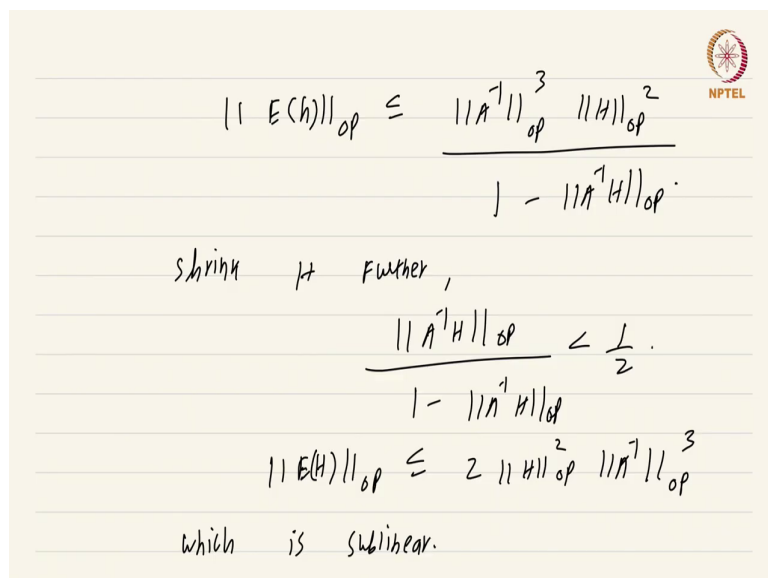 NPTEL
|| E(h)||_op ≤ ||A^-1||_op^3 ||H||_op^2 / 1 - ||A^-1 H||_op.
Shrink H Further,
||A^-1 H||_op / 1 - ||A^-1 H||_op < 1/2.
|| E(H)||_op ≤ 2 ||H||_op^2 ||A^-1||_op^3
which is sublinear.